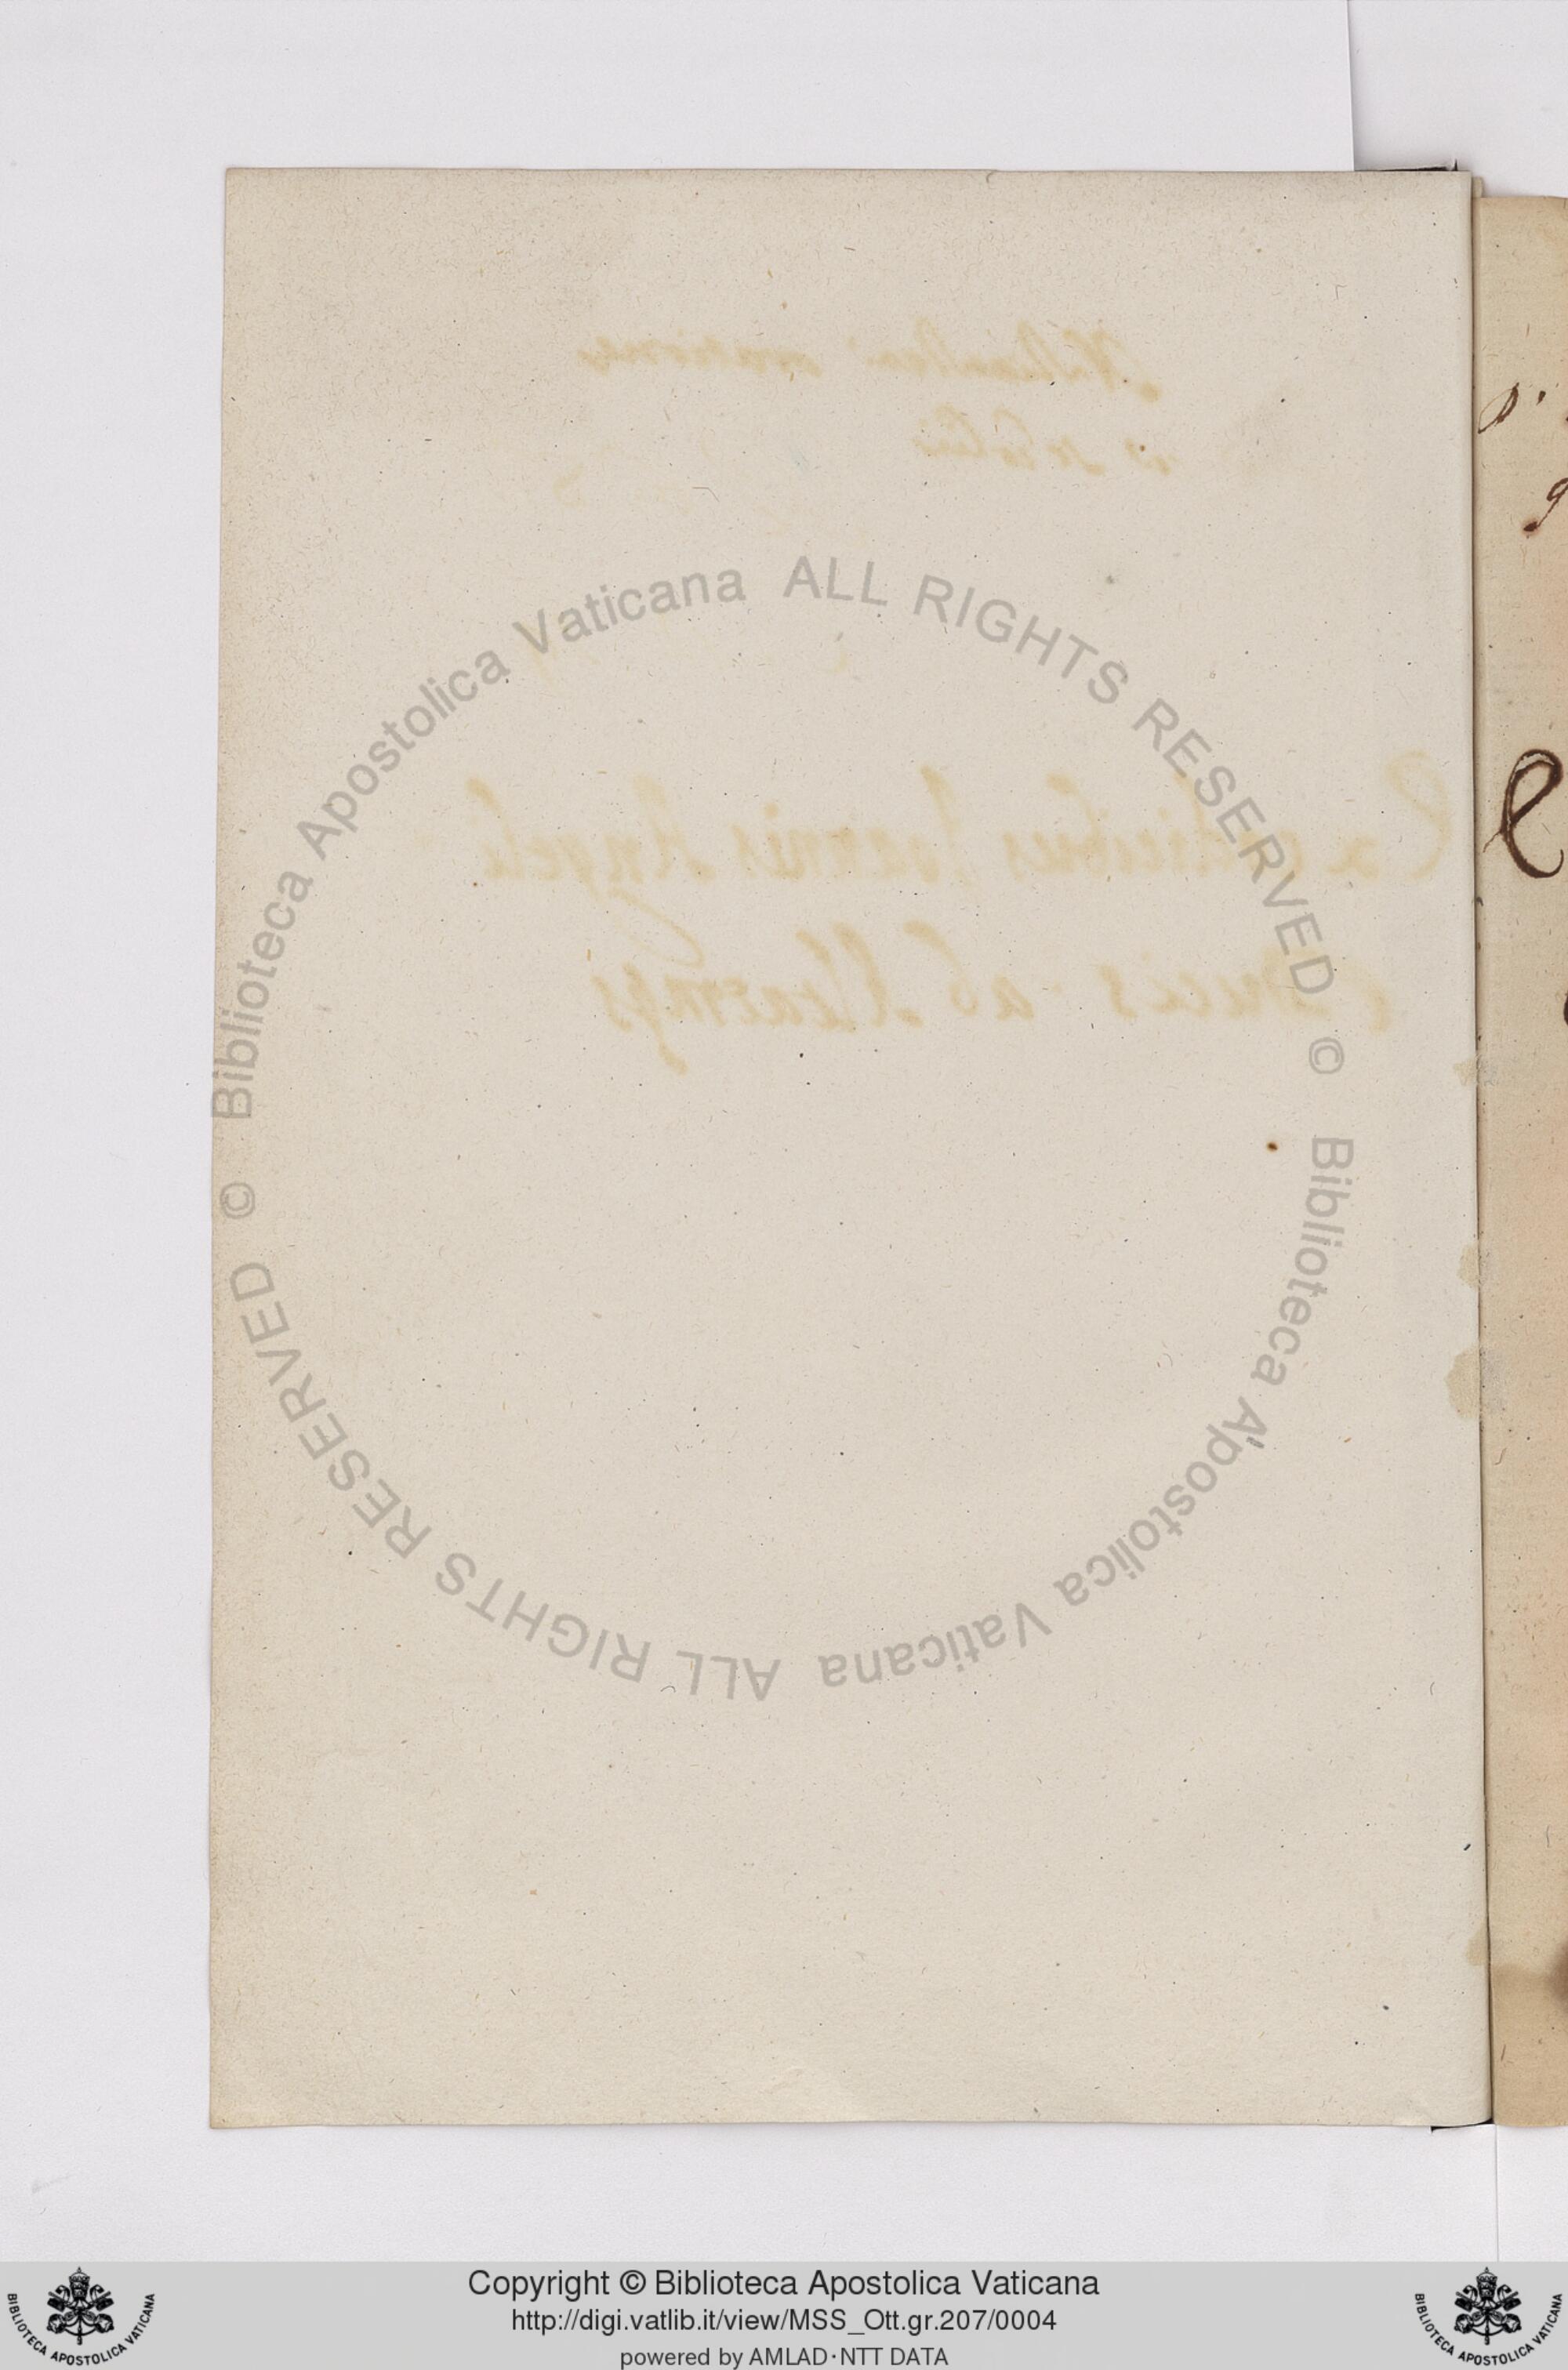 orationes
Ex codicibus Joannis Angeli
Ducis ab Altaemps
© Biblioteca Apostolica Vaticana ALL RIGHTS RESERVED
© Biblioteca Apostolica Vaticana ALL RIGHTS RESERVED
Copyright © Biblioteca Apostolica Vaticana
http://digi.vatlib.it/view/MSS_Ott.gr.207/0004
powered by AMLAD·NTT DATA
BIBLIOTECA APOSTOLICA VATICANA
BIBLIOTECA APOSTOLICA VATICANA